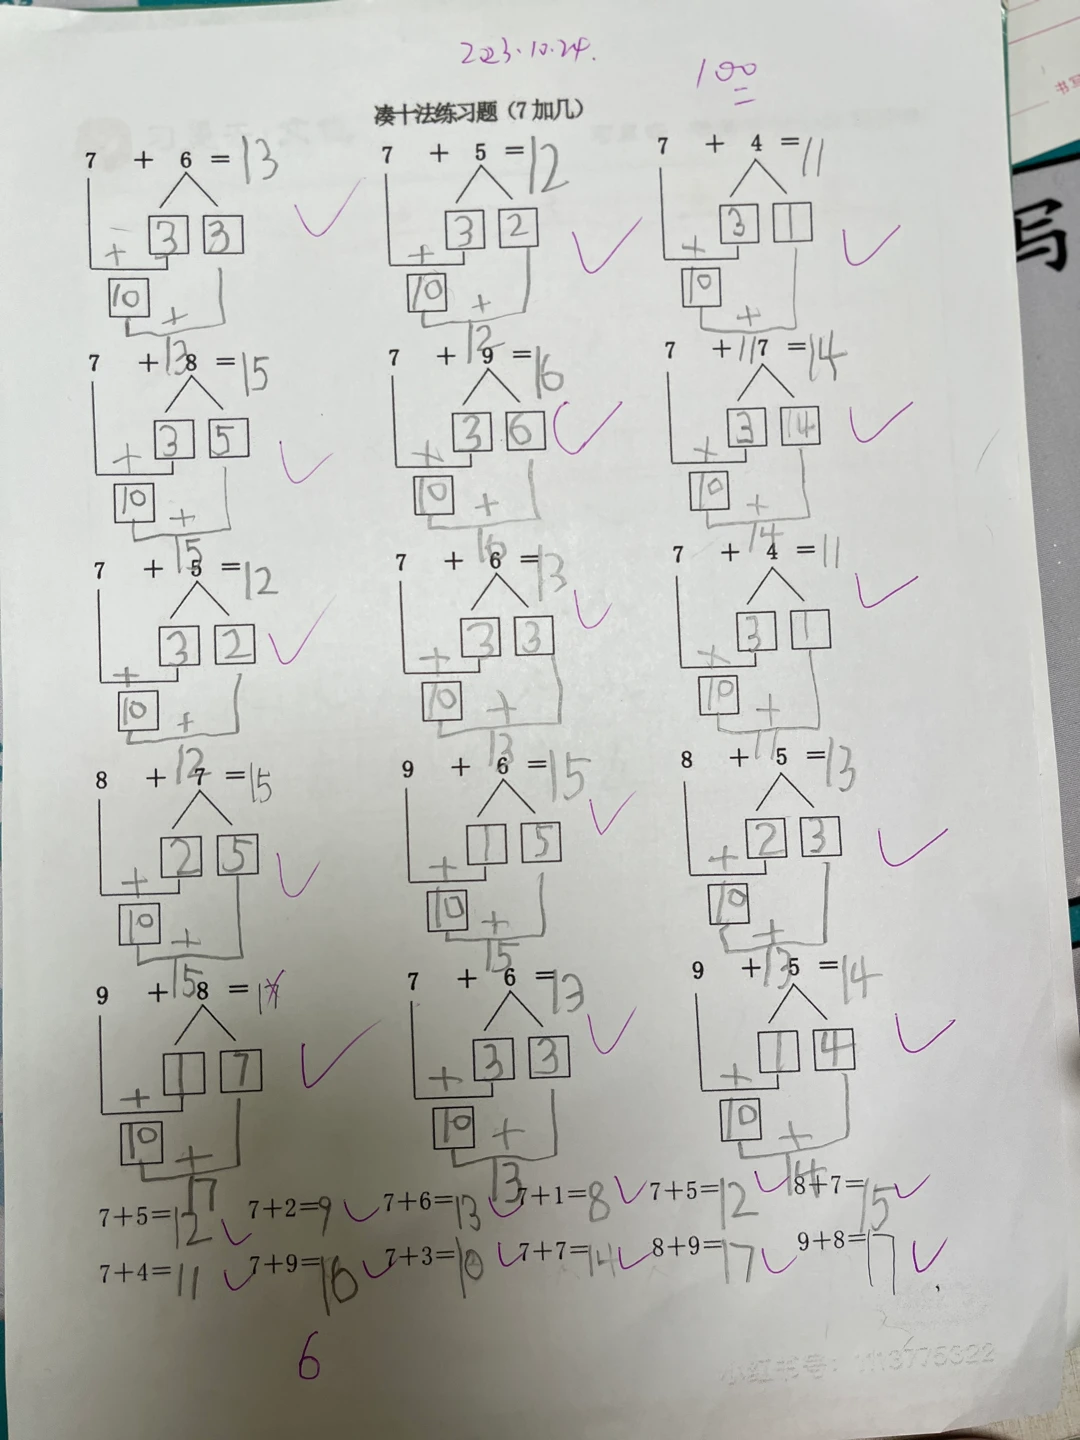 2023.10.24.
100
凑十法练习题（7加几）
7 + 6 = 13 7 + 5 = 12 7 + 4 = 11
3 3 3 2 3 1
+ + +
10 10 10
+ + +
13 12 11
7 + 8 = 15 7 + 9 = 16 7 + 7 = 14
3 5 3 6 3 14
+ + +
10 10 10
+ + +
15 16 14
7 + 5 = 12 7 + 6 = 13 7 + 4 = 11
3 2 3 3 3 1
+ + +
10 10 10
+ + +
12 13 11
8 + 7 = 15 9 + 6 = 15 8 + 5 = 13
2 5 1 5 2 3
+ + +
10 10 10
+ + +
15 15 13
9 + 8 = 17 7 + 6 = 13 9 + 5 = 14
1 7 3 3 1 4
+ + +
10 10 10
+ + +
17 13 14
7+5=12 7+2=9 7+6=13 7+1=8 7+5=12 8+7=15
7+4=11 7+9=16 7+3=10 7+7=14 8+9=17 9+8=17
6
小红书号：1113775322
写